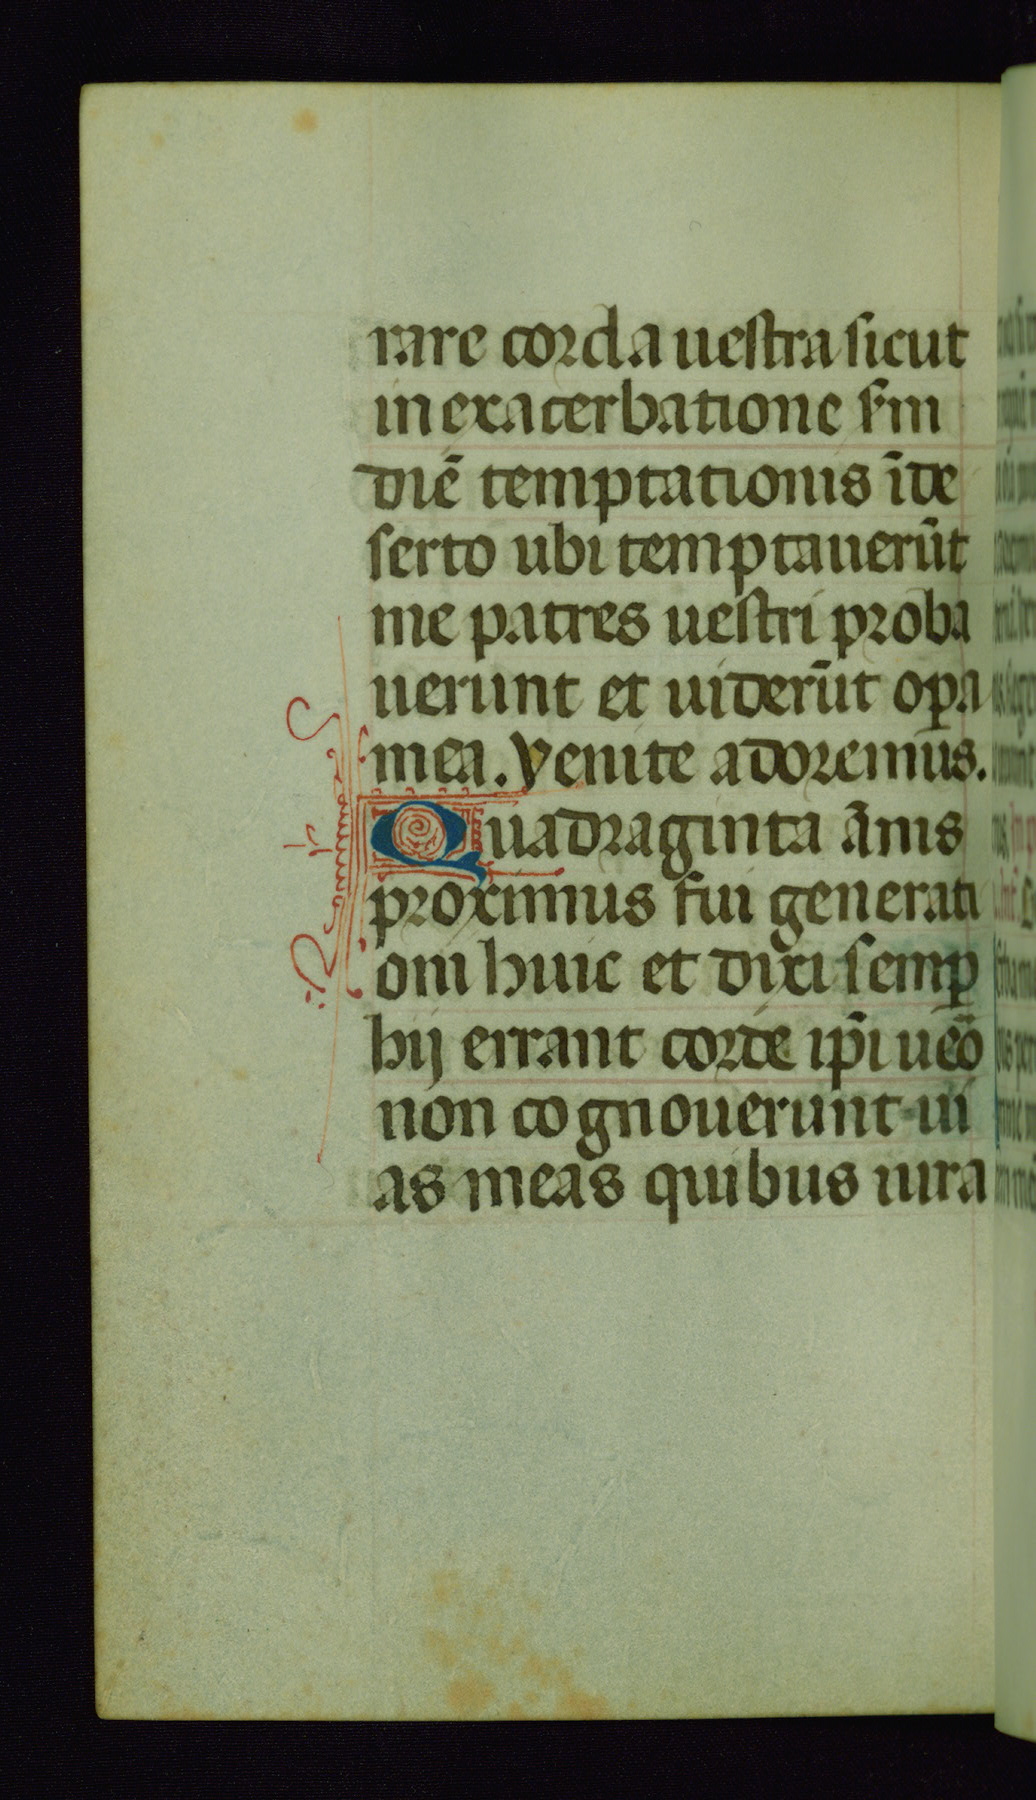 rare corda uestra sicut
in exacerbatione scᷓm
diē temptationis īde
serto ubi temptauerūt
me patres uestri proba
uerunt et uiderūt oꝑa
mea. Venite adoremus.
Quadraginta ānis
proximus fui generati
oni huic et dixi semꝑ
hij errant corde ip̄i ueō
non cognouerunt ui
as meas quibus iura